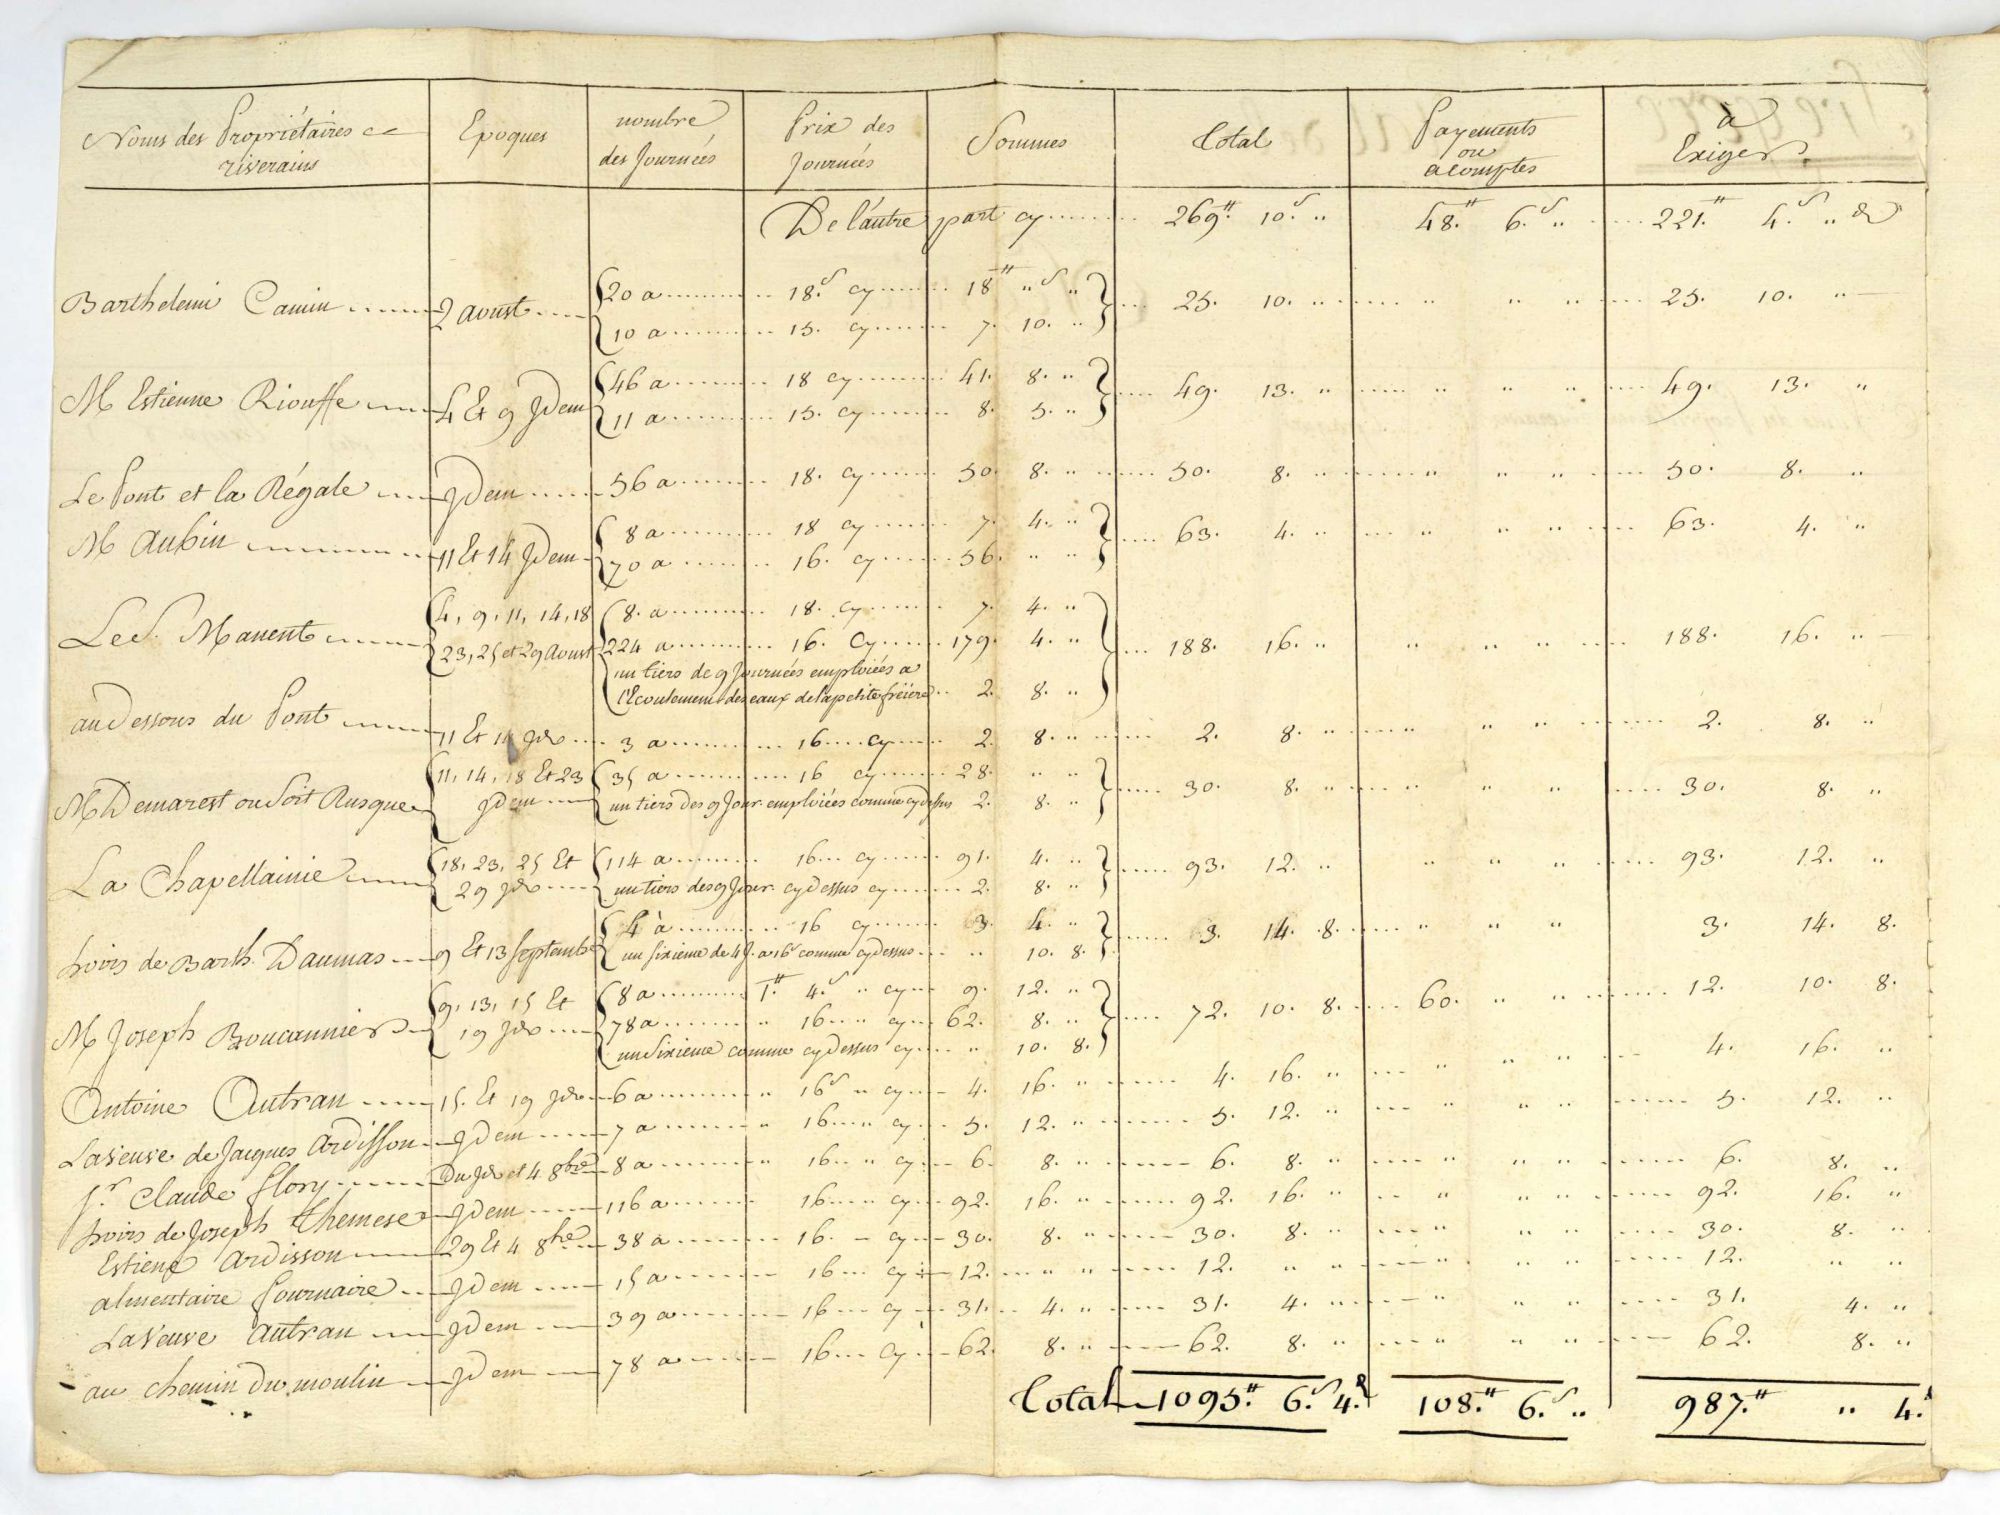 Noms des Propriétaires riverains | Epoques | nombre des Journées | Prix des Journées | Sommes | Total | Payements ou acomptes | à Exiger
De l'autre part cy ...... 269.ᵗᵗ 10.ˢ " | 48.ᵗᵗ 6.ˢ " | 221.ᵗᵗ 4.ˢ "
Barthelemi Camin | 2 aoust | 20 a | 18.ˢ cy | 18ᵗᵗ "ˢ " | 25. 10. " | " " " | 25. 10. "
10 a | 15. cy | 7. 10. "
M Estienne Riouffe | 4 Et 9 Jdem | 46 a | 18 cy | 41. 8. " | 49. 13. " | " " " | 49. 13. "
11 a | 15. cy | 8. 5. "
Le Pont et la Régale | Jdem | 56 a | 18. cy | 50. 8. " | 50. 8. " | " " " | 50. 8. "
M Aubin | 11 Et 14 Jdem | 8 a | 18 cy | 7. 4. " | 63. 4. " | " " " | 63. 4. "
70 a | 16. cy | 56. " "
Le S. Manent | 4, 9, 11, 14, 18 | 8. a | 18. cy | 7. 4. " | 188. 16. " | " " " | 188. 16. "
23, 25 et 29 Aoust | 224 a | 16. cy | 179. 4. "
un tiers de 9 Journées emploiées a
l'Ecoulement des eaux de la petite freiere | 2. 8. "
au dessous du Pont | 11 Et 14 Jd. | 3 a | 16 cy | 2. 8. " | 2. 8. " | " " " | 2. 8. "
M Demarest ou soit Rusque | 11, 14, 18 Et 23 | 35 a | 16 cy | 28. " " | 30. 8. " | " " " | 30. 8. "
Jdem | un tiers des 9 Jour. emploiées comme cy dessus | 2. 8. "
La Chapellainie | 18, 23, 25 Et | 114 a | 16 cy | 91. 4. " | 93. 12. " | " " " | 93. 12. "
29 Jd. | un tiers des 9 Jour. cy dessus cy | 2. 8. "
hoirs de Barth. Daumas | 9 Et 13 Septembre | 4 à | 16 cy | 3. 4. " | 3. 14. 8. | " " " | 3. 14. 8.
un sixieme de 4 J. a 16ˢ comme cy dessus | " 10. 8.
M Joseph Boucannier | 9, 13, 15 Et | 8 a | 1.ᵗᵗ 4.ˢ " cy | 9. 12. " | 72. 10. 8. | 60. " " | 12. 10. 8.
19 Jd. | 78 a | " 16 " cy | 62. 8. "
un Sixieme comme cy dessus cy | " 10. 8.
Antoine Autran | 15. Et 19 Jd. | 6 a | " 16ˢ " cy | 4. 16. " | 4. 16. " | " " " | 4. 16. "
La veuve de Jacques Ardisson | Jdem | 7 a | " 16 " cy | 5. 12. " | 5. 12. " | " " " | 5. 12. "
Sʳ. Claude flory | Du Jd. et 4 8bre | 8 a | " 16 " cy | 6. 8. " | 6. 8. " | " " " | 6. 8. "
hoirs de Joseph themese | Jdem | 116 a | 16 " cy | 92. 16. " | 92. 16. " | " " " | 92. 16. "
Estiene Ardisson | 29 Et 4 8bre | 38 a | 16. cy | 30. 8. " | 30. 8. " | " " " | 30. 8. "
alimentaire fournaire | Jdem | 15 a | 16 cy | 12. " " | 12. " " | " " " | 12. " "
La veuve autran | Jdem | 39 a | 16 cy | 31. 4. " | 31. 4. " | " " " | 31. 4. "
au chemin du moulin | Jdem | 78 a | 16 cy | 62. 8. " | 62. 8. " | " " " | 62. 8. "
Total 1095.ᵗᵗ 6.ˢ 4.ᵈ | 108.ᵗᵗ 6.ˢ " | 987.ᵗᵗ " 4.ᵈ